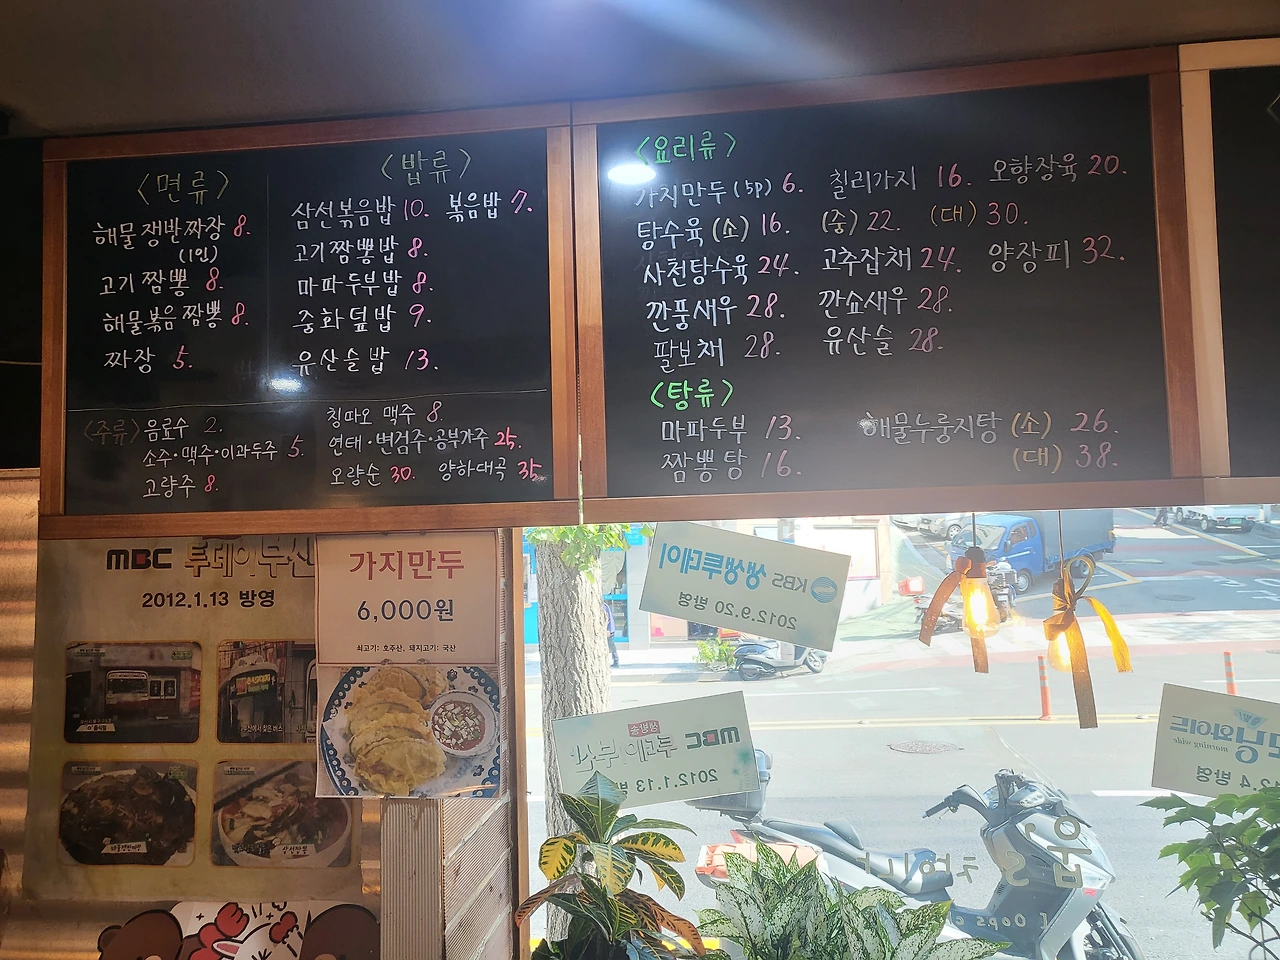 <면류>
해물쟁반짜장 8.
(1인)
고기짬뽕 8.
해물볶음짬뽕 8.
짜장 5.
<밥류>
삼선볶음밥 10. 볶음밥 7.
고기짬뽕밥 8.
마파두부밥 8.
중화덮밥 9.
유산슬밥 13.
<주류> 음료수 2.
소주·맥주·이과두주 5.
고량주 8.
칭따오 맥주 8.
연태·변검주·공부가주 25.
오량순 30. 양하대곡 35
<요리류>
가지만두(5P) 6. 칠리가지 16. 오향장육 20.
탕수육 (소) 16. (중) 22. (대) 30.
사천탕수육 24. 고추잡채 24. 양장피 32.
깐풍새우 28. 깐쇼새우 28.
팔보채 28. 유산슬 28.
<탕류>
마파두부 13. 해물누룽지탕 (소) 26.
짬뽕탕 16. (대) 38.
MBC 투데이부산
2012.1.13 방영
가지만두
6,000원
쇠고기: 호주산, 돼지고기: 국산
KBS 생생투데이
2012.9.20 방영
생방송
MBC 투데이부산
2012.1.13 방
모닝와이드
morning wide
2.4 방영
웁s 차이나
Oops c